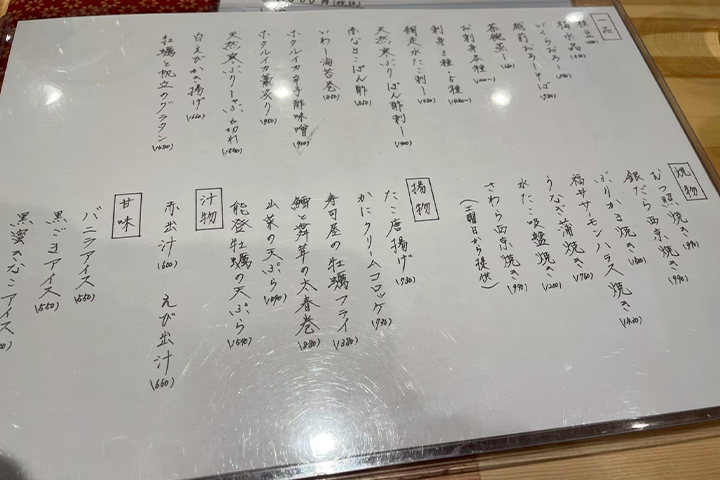 一品
枝豆
梅水晶
いくらおろし
越前おろしそば
茶碗蒸し
お刺身各種
刺身3種・5種
相走水たこ刺し
天然寒ぶりぽん酢刺し
赤なまこぽん酢
いわし海苔巻
ホタルイカ辛子酢味噌
ホタルイカ藁炙り
天然寒ぶりしゃぶ
白えびかき揚げ (660)
牡蠣と帆立のグラタン (1480)
焼物
ぶつ照焼き (990)
銀だら西京焼き (990)
ぶりかま焼き
福井サーモンハラス焼き
うなぎ蒲焼き (1760)
水たこ吸盤焼き
さわら西京焼き (990)
(土曜日から提供)
揚物
たこ唐揚げ (930)
かにクリームコロッケ (930)
寿司屋の牡蠣フライ (1380)
鯛と舞茸の大春巻 (880)
山菜の天ぷら
能登牡蠣の天ぷら
汁物
赤出汁 (600)
えび出汁 (660)
甘味
バニラアイス (550)
黒ごまアイス (550)
黒蜜きなこアイス